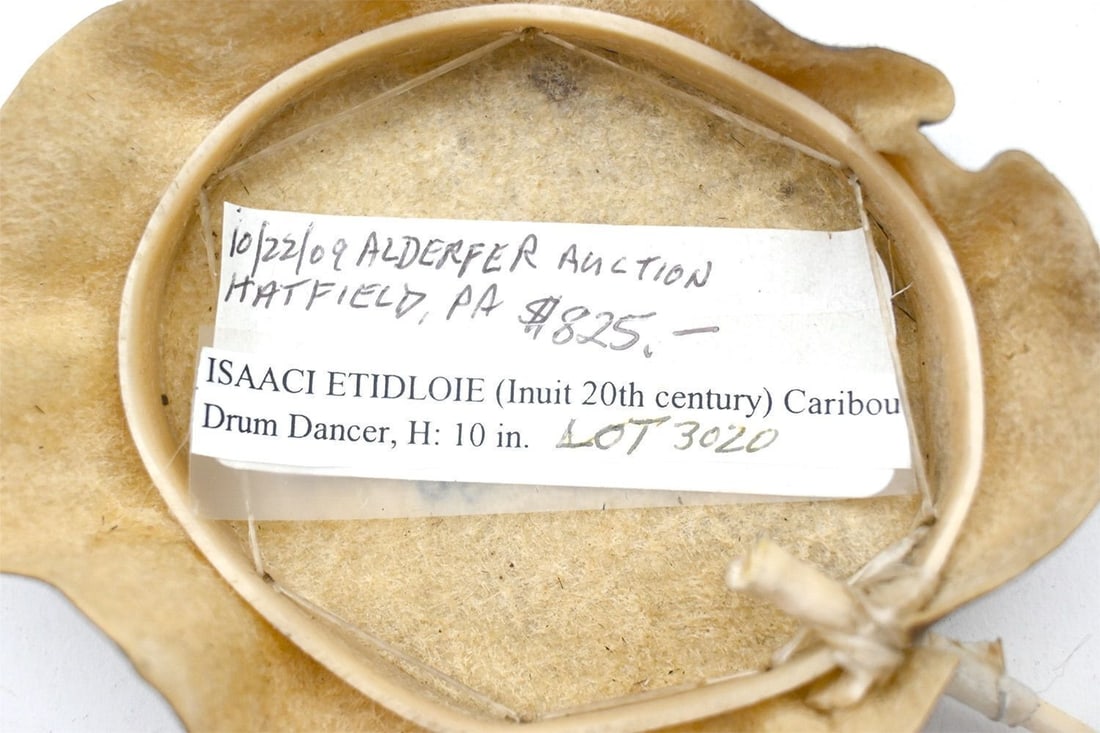 10/22/09 ALDERFER AUCTION
HATFIELD, PA $825.—
ISAACI ETIDLOIE (Inuit 20th century) Caribou
Drum Dancer, H: 10 in. LOT 3020